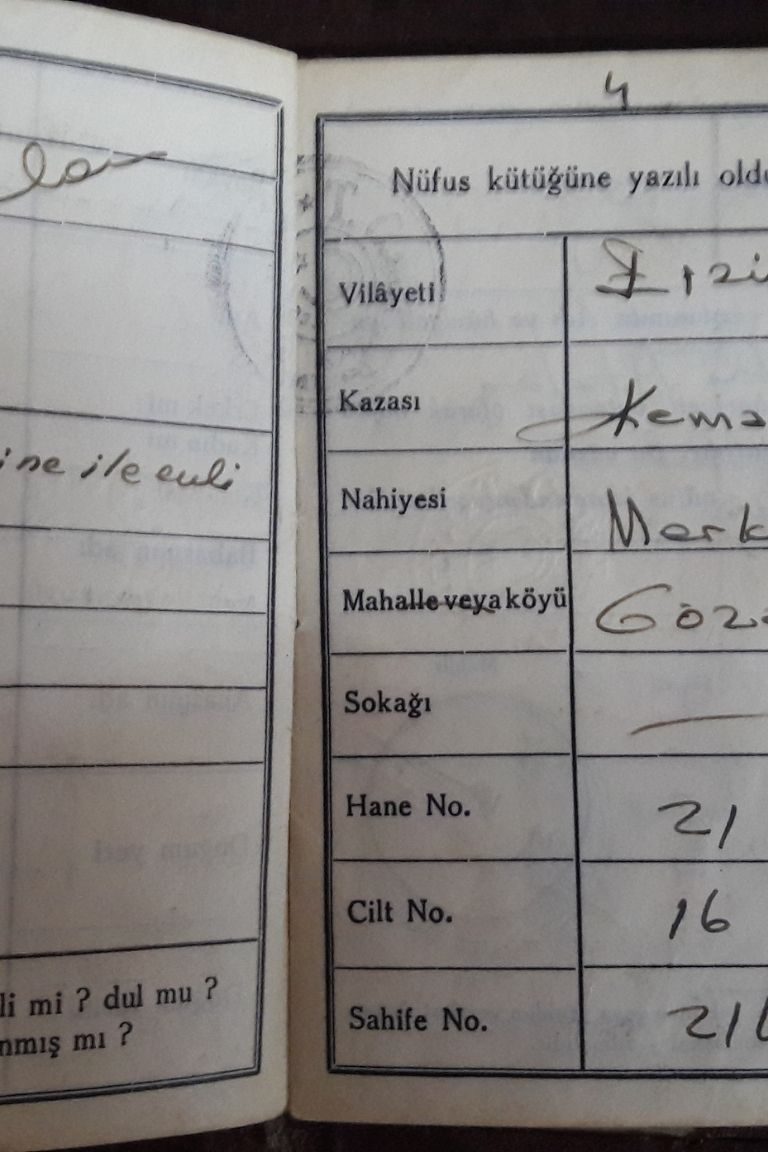 ine ile evli
li mi ? dul mu ?
nmış mı ?
4
Nüfus kütüğüne yazılı oldu
Vilâyeti
Kazası Kema
Nahiyesi Merk
Mahalle veya köyü Göz
Sokağı —
Hane No. 21
Cilt No. 16
Sahife No. 21